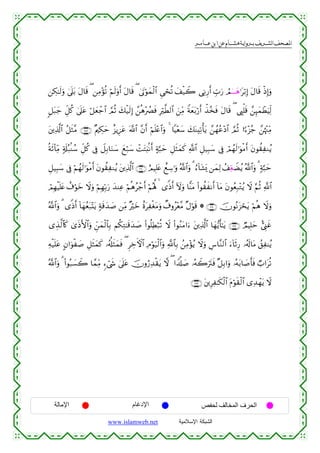 المصحف الشريف برواية هشام عن ابن عامر
وَإِذْ قَالَ إِبْرَٰهَٰمُ رَبِّ أَرِنِى كَيْفَ تُحْىِ ٱلْمَوْتَىٰ ۖ قَالَ أَوَلَمْ تُؤْمِن ۖ قَالَ بَلَىٰ وَلَٰكِن
لِّيَطْمَئِنَّ قَلْبِى ۖ قَالَ فَخُذْ أَرْبَعَةً مِّنَ ٱلطَّيْرِ فَصُرْهُنَّ إِلَيْكَ ثُمَّ ٱجْعَلْ عَلَىٰ كُلِّ جَبَلٍ
مِّنْهُنَّ جُزْءًا ثُمَّ ٱدْعُهُنَّ يَأْتِينَكَ سَعْيًا ۚ وَٱعْلَمْ أَنَّ ٱللَّهَ عَزِيزٌ حَكِيمٌ مَّثَلُ ٱلَّذِينَ
يُنفِقُونَ أَمْوَٰلَهُمْ فِى سَبِيلِ ٱللَّهِ كَمَثَلِ حَبَّةٍ أَنۢبَتَت سَّبْعَ سَنَابِلَ فِى كُلِّ سُنۢبُلَةٍ مِّا۟ئَةُ
حَبَّةٍ ۗ وَٱللَّهُ يُضَعِّفُ لِمَن يَشَآءُ ۗ وَٱللَّهُ وَٰسِعٌ عَلِيمٌ ٱلَّذِينَ يُنفِقُونَ أَمْوَٰلَهُمْ فِى سَبِيلِ
ٱللَّهِ ثُمَّ لَا يُتْبِعُونَ مَآ أَنفَقُوا۟ مَنًّا وَلَآ أَذًى ۙ لَّهُمْ أَجْرُهُمْ عِندَ رَبِّهِمْ وَلَا خَوْفٌ عَلَيْهِمْ
وَلَا هُمْ يَحْزَنُونَ ۞ قَوْلٌ مَّعْرُوفٌ وَمَغْفِرَةٌ خَيْرٌ مِّن صَدَقَةٍ يَتْبَعُهَآ أَذًى ۗ وَٱللَّهُ
غَنِىٌّ حَلِيمٌ يَٰٓأَيُّهَا ٱلَّذِينَ ءَامَنُوا۟ لَا تُبْطِلُوا۟ صَدَقَٰتِكُم بِٱلْمَنِّ وَٱلْأَذَىٰ كَٱلَّذِى
يُنفِقُ مَالَهُۥ رِئَآءَ ٱلنَّاسِ وَلَا يُؤْمِنُ بِٱللَّهِ وَٱلْيَوْمِ ٱلْءَاخِرِ ۖ فَمَثَلُهُۥ كَمَثَلِ صَفْوَانٍ عَلَيْهِ
تُرَابٌ فَأَصَابَهُۥ وَابِلٌ فَتَرَكَهُۥ صَلْدًا ۖ لَّا يَقْدِرُونَ عَلَىٰ شَىْءٍ مِّمَّا كَسَبُوا۟ ۗ وَٱللَّهُ
لَا يَهْدِى ٱلْقَوْمَ ٱلْكَٰفِرِينَ
الحرف المخالف لحفص الإدغام الإمالة
الشبكة الإسلامية www.islamweb.net